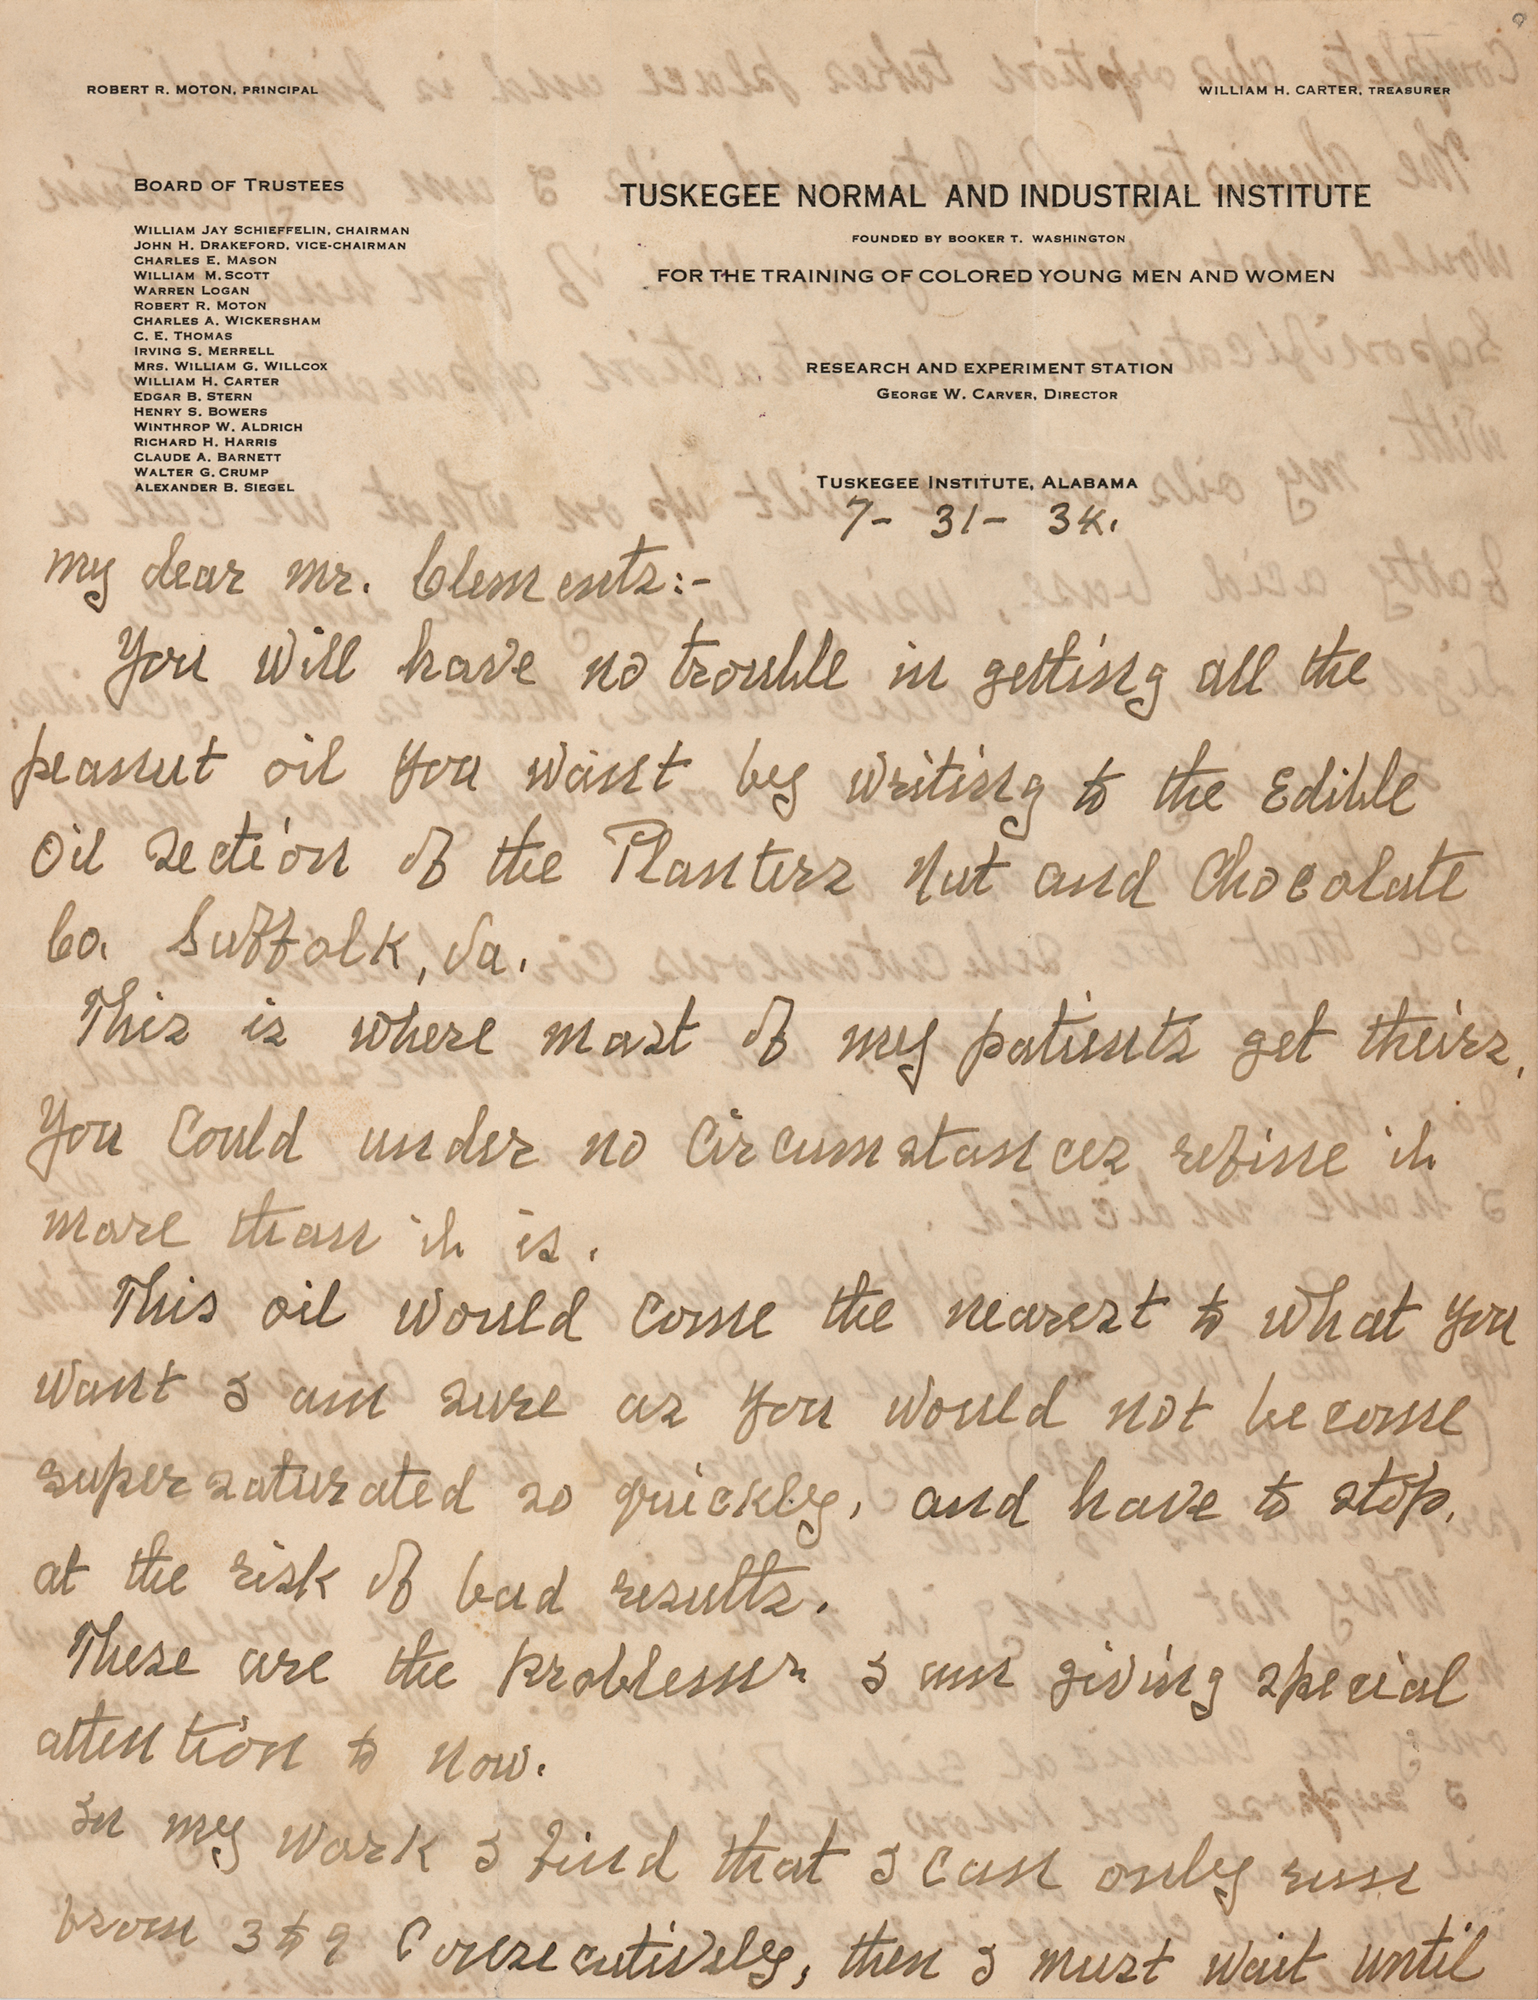 ROBERT R. MOTON, PRINCIPAL
WILLIAM H. CARTER, TREASURER
BOARD OF TRUSTEES
WILLIAM JAY SCHIEFFELIN, CHAIRMAN
JOHN H. DRAKEFORD, VICE-CHAIRMAN
CHARLES E. MASON
WILLIAM M. SCOTT
WARREN LOGAN
ROBERT R. MOTON
CHARLES A. WICKERSHAM
C. E. THOMAS
IRVING S. MERRELL
MRS. WILLIAM G. WILLCOX
WILLIAM H. CARTER
EDGAR B. STERN
HENRY S. BOWERS
WINTHROP W. ALDRICH
RICHARD H. HARRIS
CLAUDE A. BARNETT
WALTER G. CRUMP
ALEXANDER B. SIEGEL
TUSKEGEE NORMAL AND INDUSTRIAL INSTITUTE
FOUNDED BY BOOKER T. WASHINGTON
FOR THE TRAINING OF COLORED YOUNG MEN AND WOMEN
RESEARCH AND EXPERIMENT STATION
GEORGE W. CARVER, DIRECTOR
TUSKEGEE INSTITUTE, ALABAMA
7- 31- 34.
My dear Mr. Clements:-
You will have no trouble in getting all the
peanut oil you want by writing to the Edible
Oil section of the Planters Nut and Chocolate
Co. Suffolk, Va.
This is where most of my patients get theirs,
You Could under no Circumstances refine it
more than it is.
This oil would come the nearest to what you
want I am sure as you would not become
super saturated so quickly, and have to stop,
at the risk of bad results.
These are the problems I am giving special
attention to now.
In my work I find that I can only run
from 3 to 9 Consecutively, then I must wait until